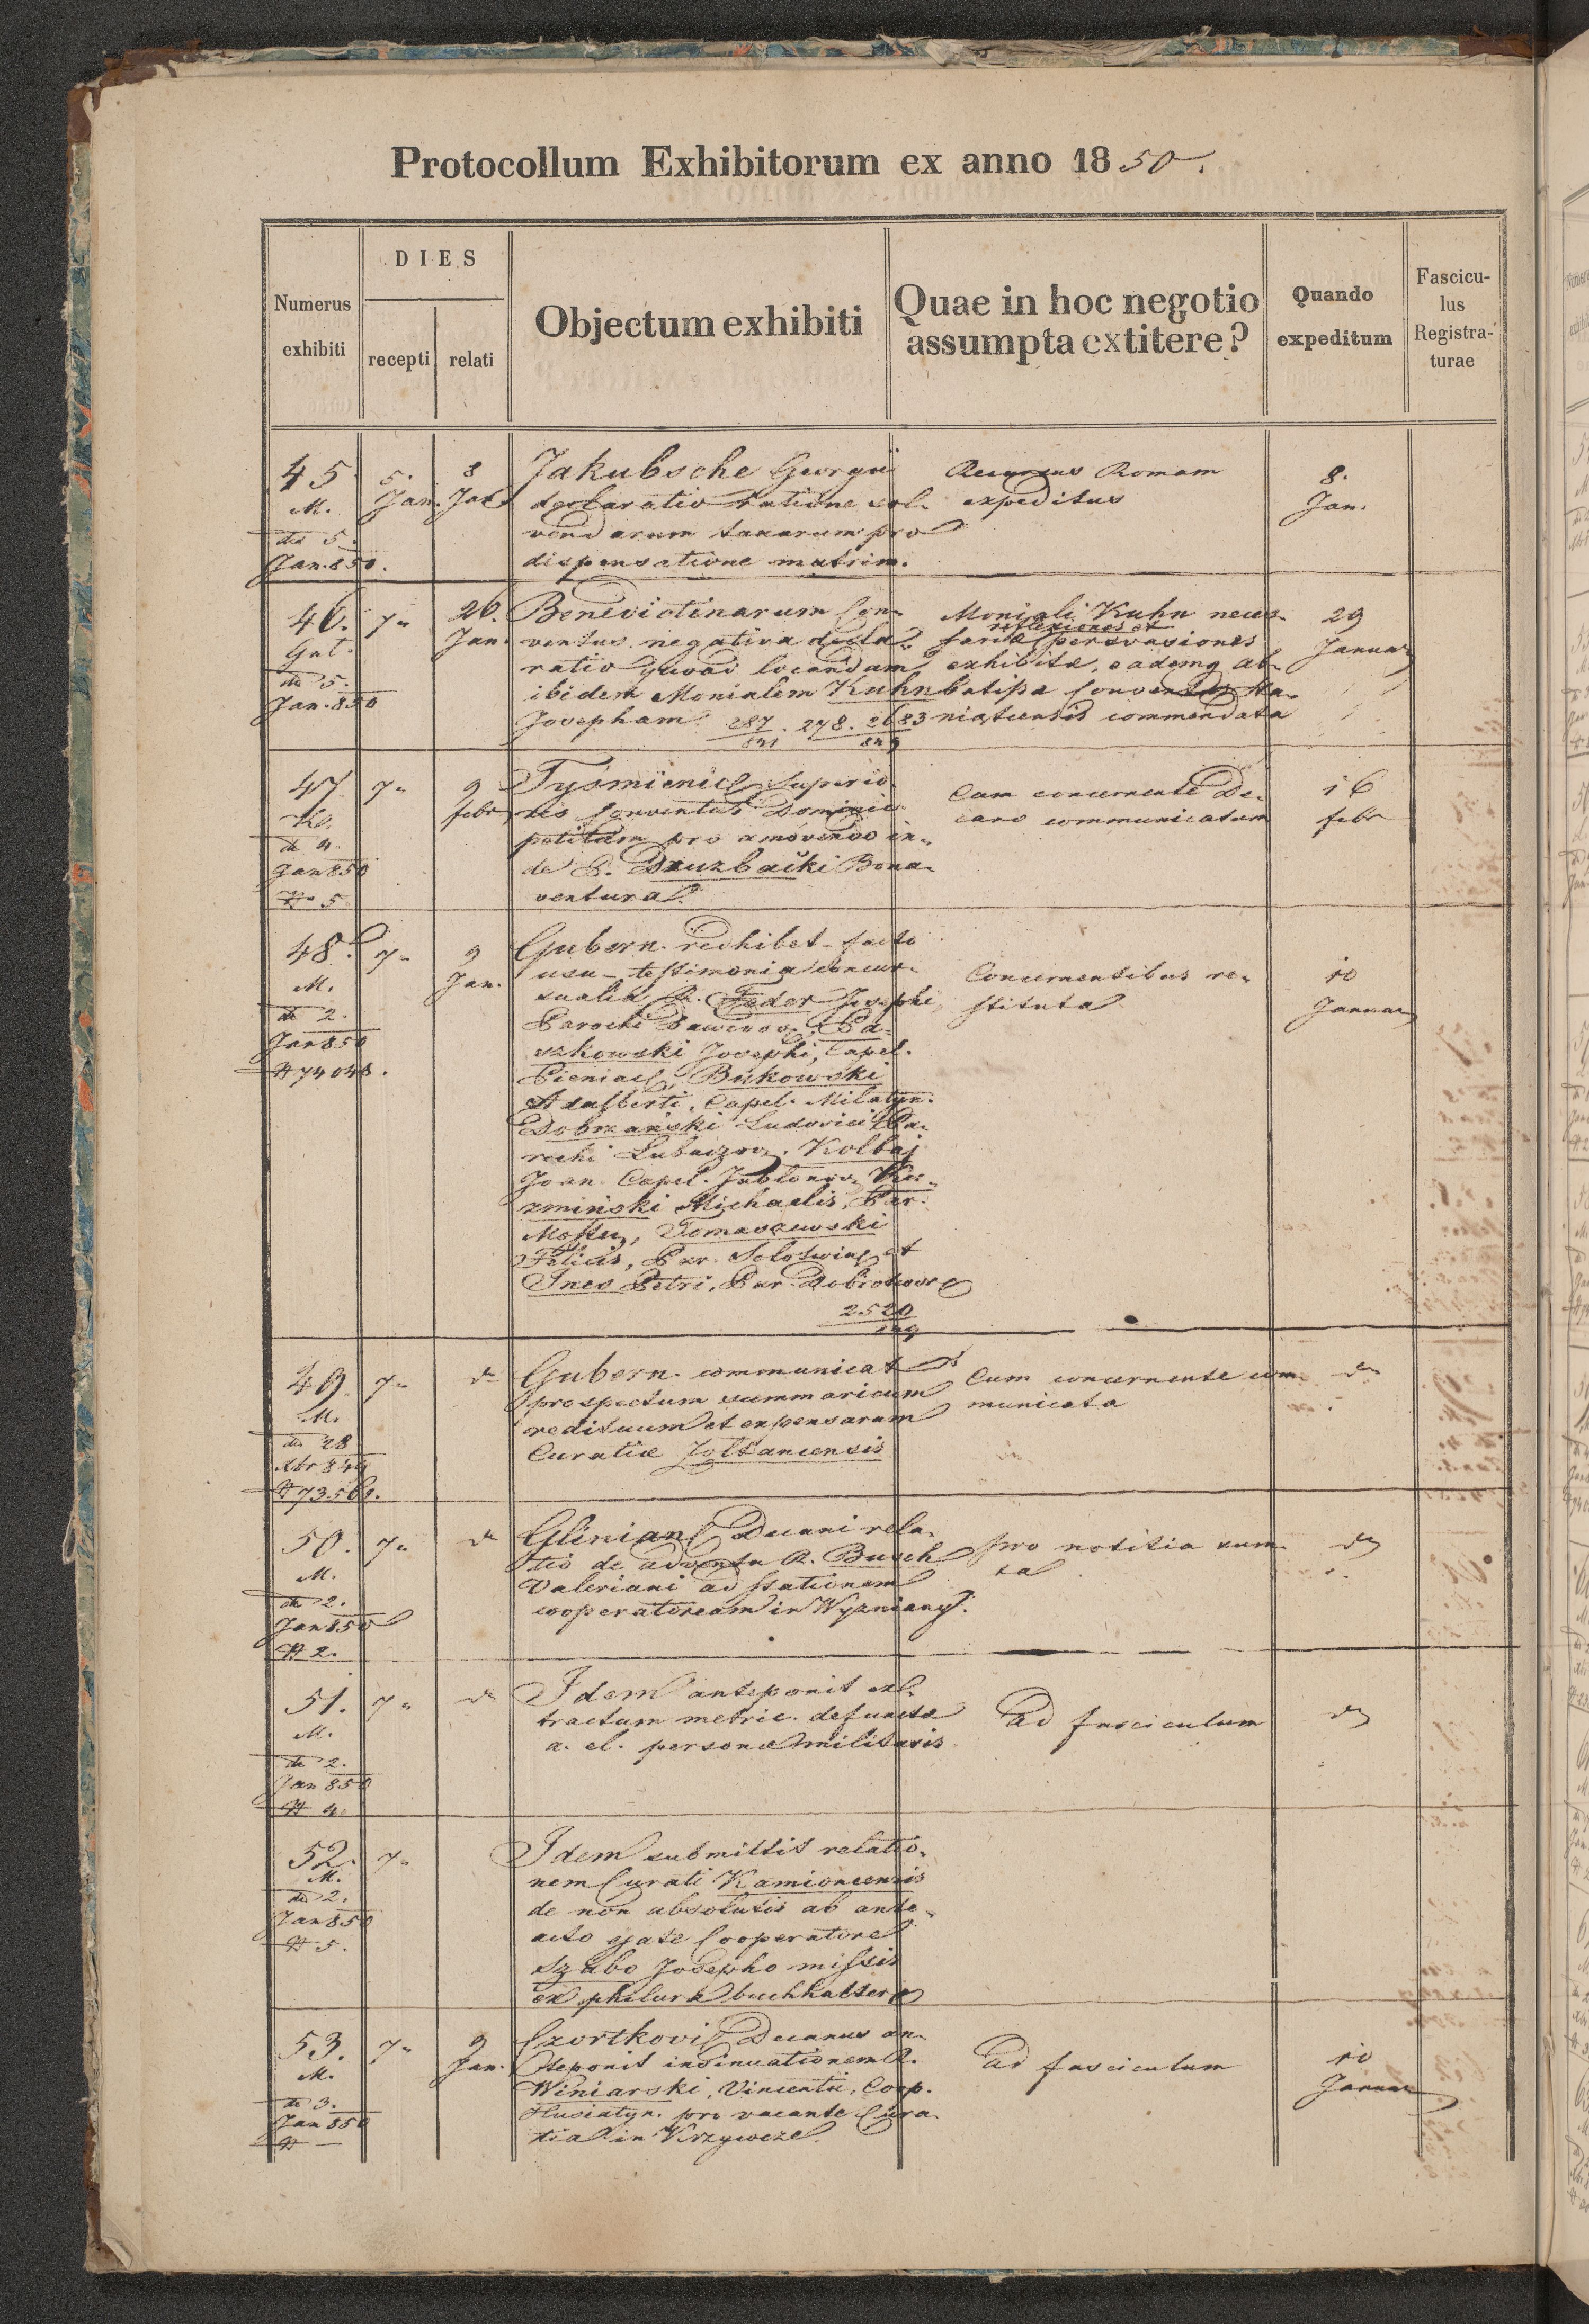 Protocollum Exhibitorum ex anno 1850.
Numerus exhibiti
DIES
recepti
relati
Objectum exhibiti
Quae in hoc negotio assumpta extitere?
Quando expeditum
Fascicu-
lus
Registra-
turae
45
M.
de 5.
Jan. 850.
5.
Jan.
8
Jan
Jakubsche Georgii
declaratio ratione sol-
vendarum taxarum pro
dispensatione matrim.
Recursus Romam
expeditus
8.
Jan.
46.
Gut.
de 5.
Jan. 850
7"
26.
Jan.
Benedictinarum Con-
ventus negativa decla-
ratio quoad locandam
ibidem Monialem Kuhn
Josepham 287/841 . 278 . 2683/849
Moniali Kuhn neces-
reflexiones et
sariae persvasiones
exhibitae, eademq ab-
batissae Conventus Sta-
niatecensis commendata
29
Januar
47
de 4
Jan 850
No 5
7"
9
febr
Tyśmienic Superio-
ris Conventus Dominic.
petitum pro amovendo in-
de P. Druzbacki Bona-
ventura.
Cum concernente De-
cano communicatum
16
febr
48.
M.
de 2.
Jan 850
# 74048.
7"
9
Jan.
Gubern. redhibet facto
usu testimonia concur-
sualia R. Feder Josephi,
Parochi , Pa-
szkowski Josephi, Capel.
Pieniac, Bukowski
Adalberti, Capel. Milatyn.
Dobrzański Ludovici Pa-
rochi Lubaczow. Kolbaj
Joan. Capel. Jablonow, Ku-
zminski Michaelis, Par.
Mosty, Tomaszewski
Felicis, Par. Solotwin, et
Ines Petri, Par. Dobrotwor
2520/849
Concernentibus re-
stituta
10
Januar
49
M.
de 28
Xbr 849
# 73561.
7"
do
Gubern. communicat
prospectum summarium
redituum et expensarum
Curatiae Joltancensis
Cum concernente com-
municata
do
50.
M.
de 2.
Jan 850
# 2.
7"
do
Glinian Decani rela-
tio de adventu R. Busch
Valeriani ad stationem
cooperatoream in Wyzniany.
Pro notitia sum-
ta
do
51.
M.
de 2.
Jan 850
# 4.
7"
do
Idem anteponit ex-
tractum metric. defunctae
a. el. personae militaris
Ad fasciculum
do
52.
M.
de 2.
Jan 850
# 5.
7"
Idem submittit relatio-
nem Curati Kamioncensis
de non absolutis ab ante-
acto ejate Cooperatore
Szabo Josepho missis
ex philura buchhalter
53.
M.
de 3.
Jan 850
# —
7"
9
Jan.
Czortkovi Decanus an-
teponit insinuationem R.
Winiarski, Vincentii, Coop.
Husiatyn. pro vacante Cura-
tia in Krzywcze
Ad fasciculum
10
Januar